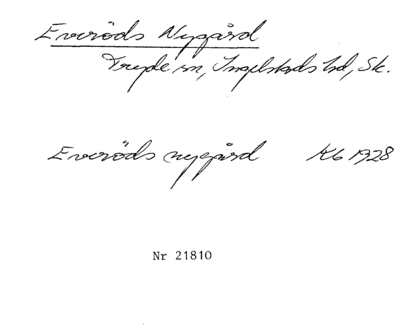 Everöds Nygård
Fryde sn, Ingelstads hd, Sk.
Everöds nygård Kb 1928
Nr 21810